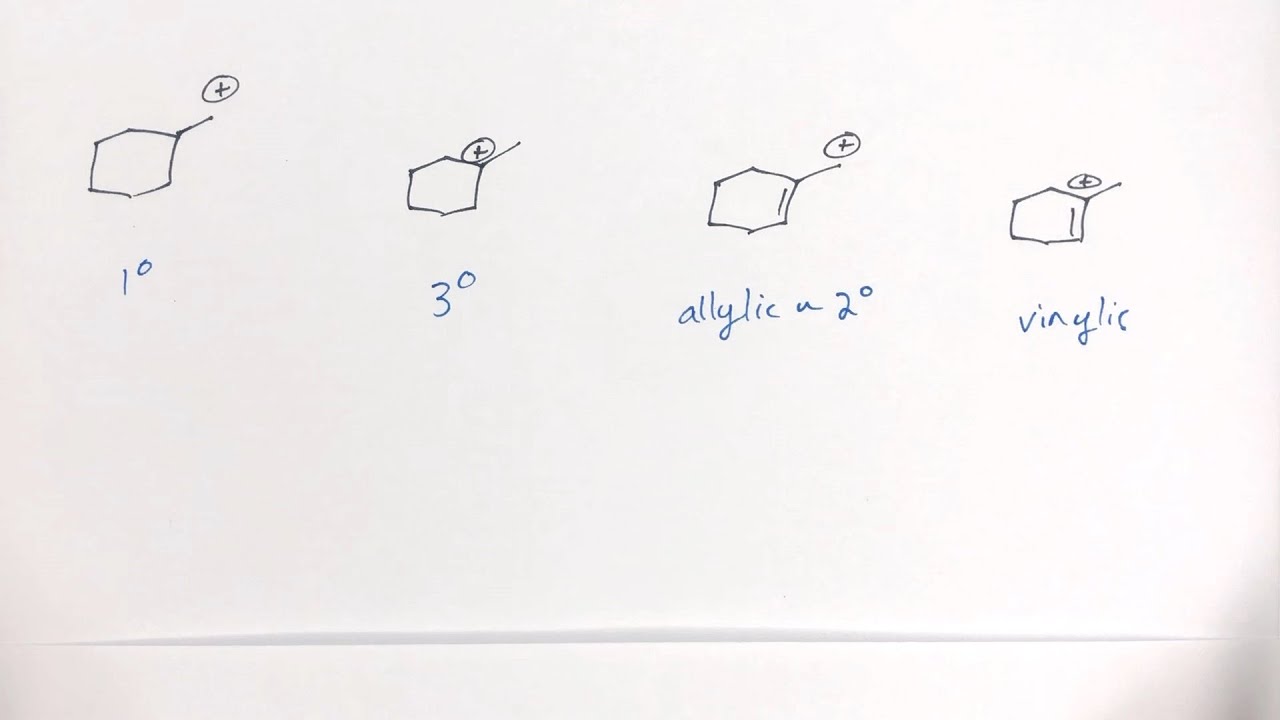 ⊕
⊕
⊕
⊕
1°
3°
allylic ~ 2°
vinylic